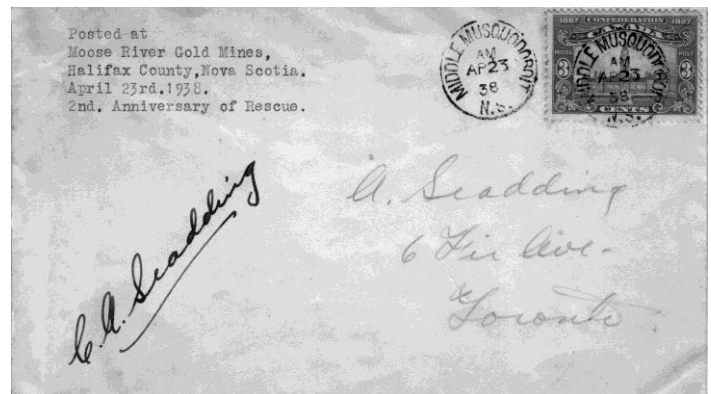 Posted at
Moose River Gold Mines,
Halifax County,Nova Scotia.
April 23rd.1938.
2nd. Anniversary of Rescue.
MIDDLE MUSQUODOBOIT
AM
AP 23
38
N.S.
1867 CONFEDERATION 1927
CANADA
POSTES POST
3 3
CENTS
MIDDLE MUSQUODOBOIT
AM
AP 23
38
N.S.
A. Scadding
6 Fir Ave.
Toronto
C.A. Scadding